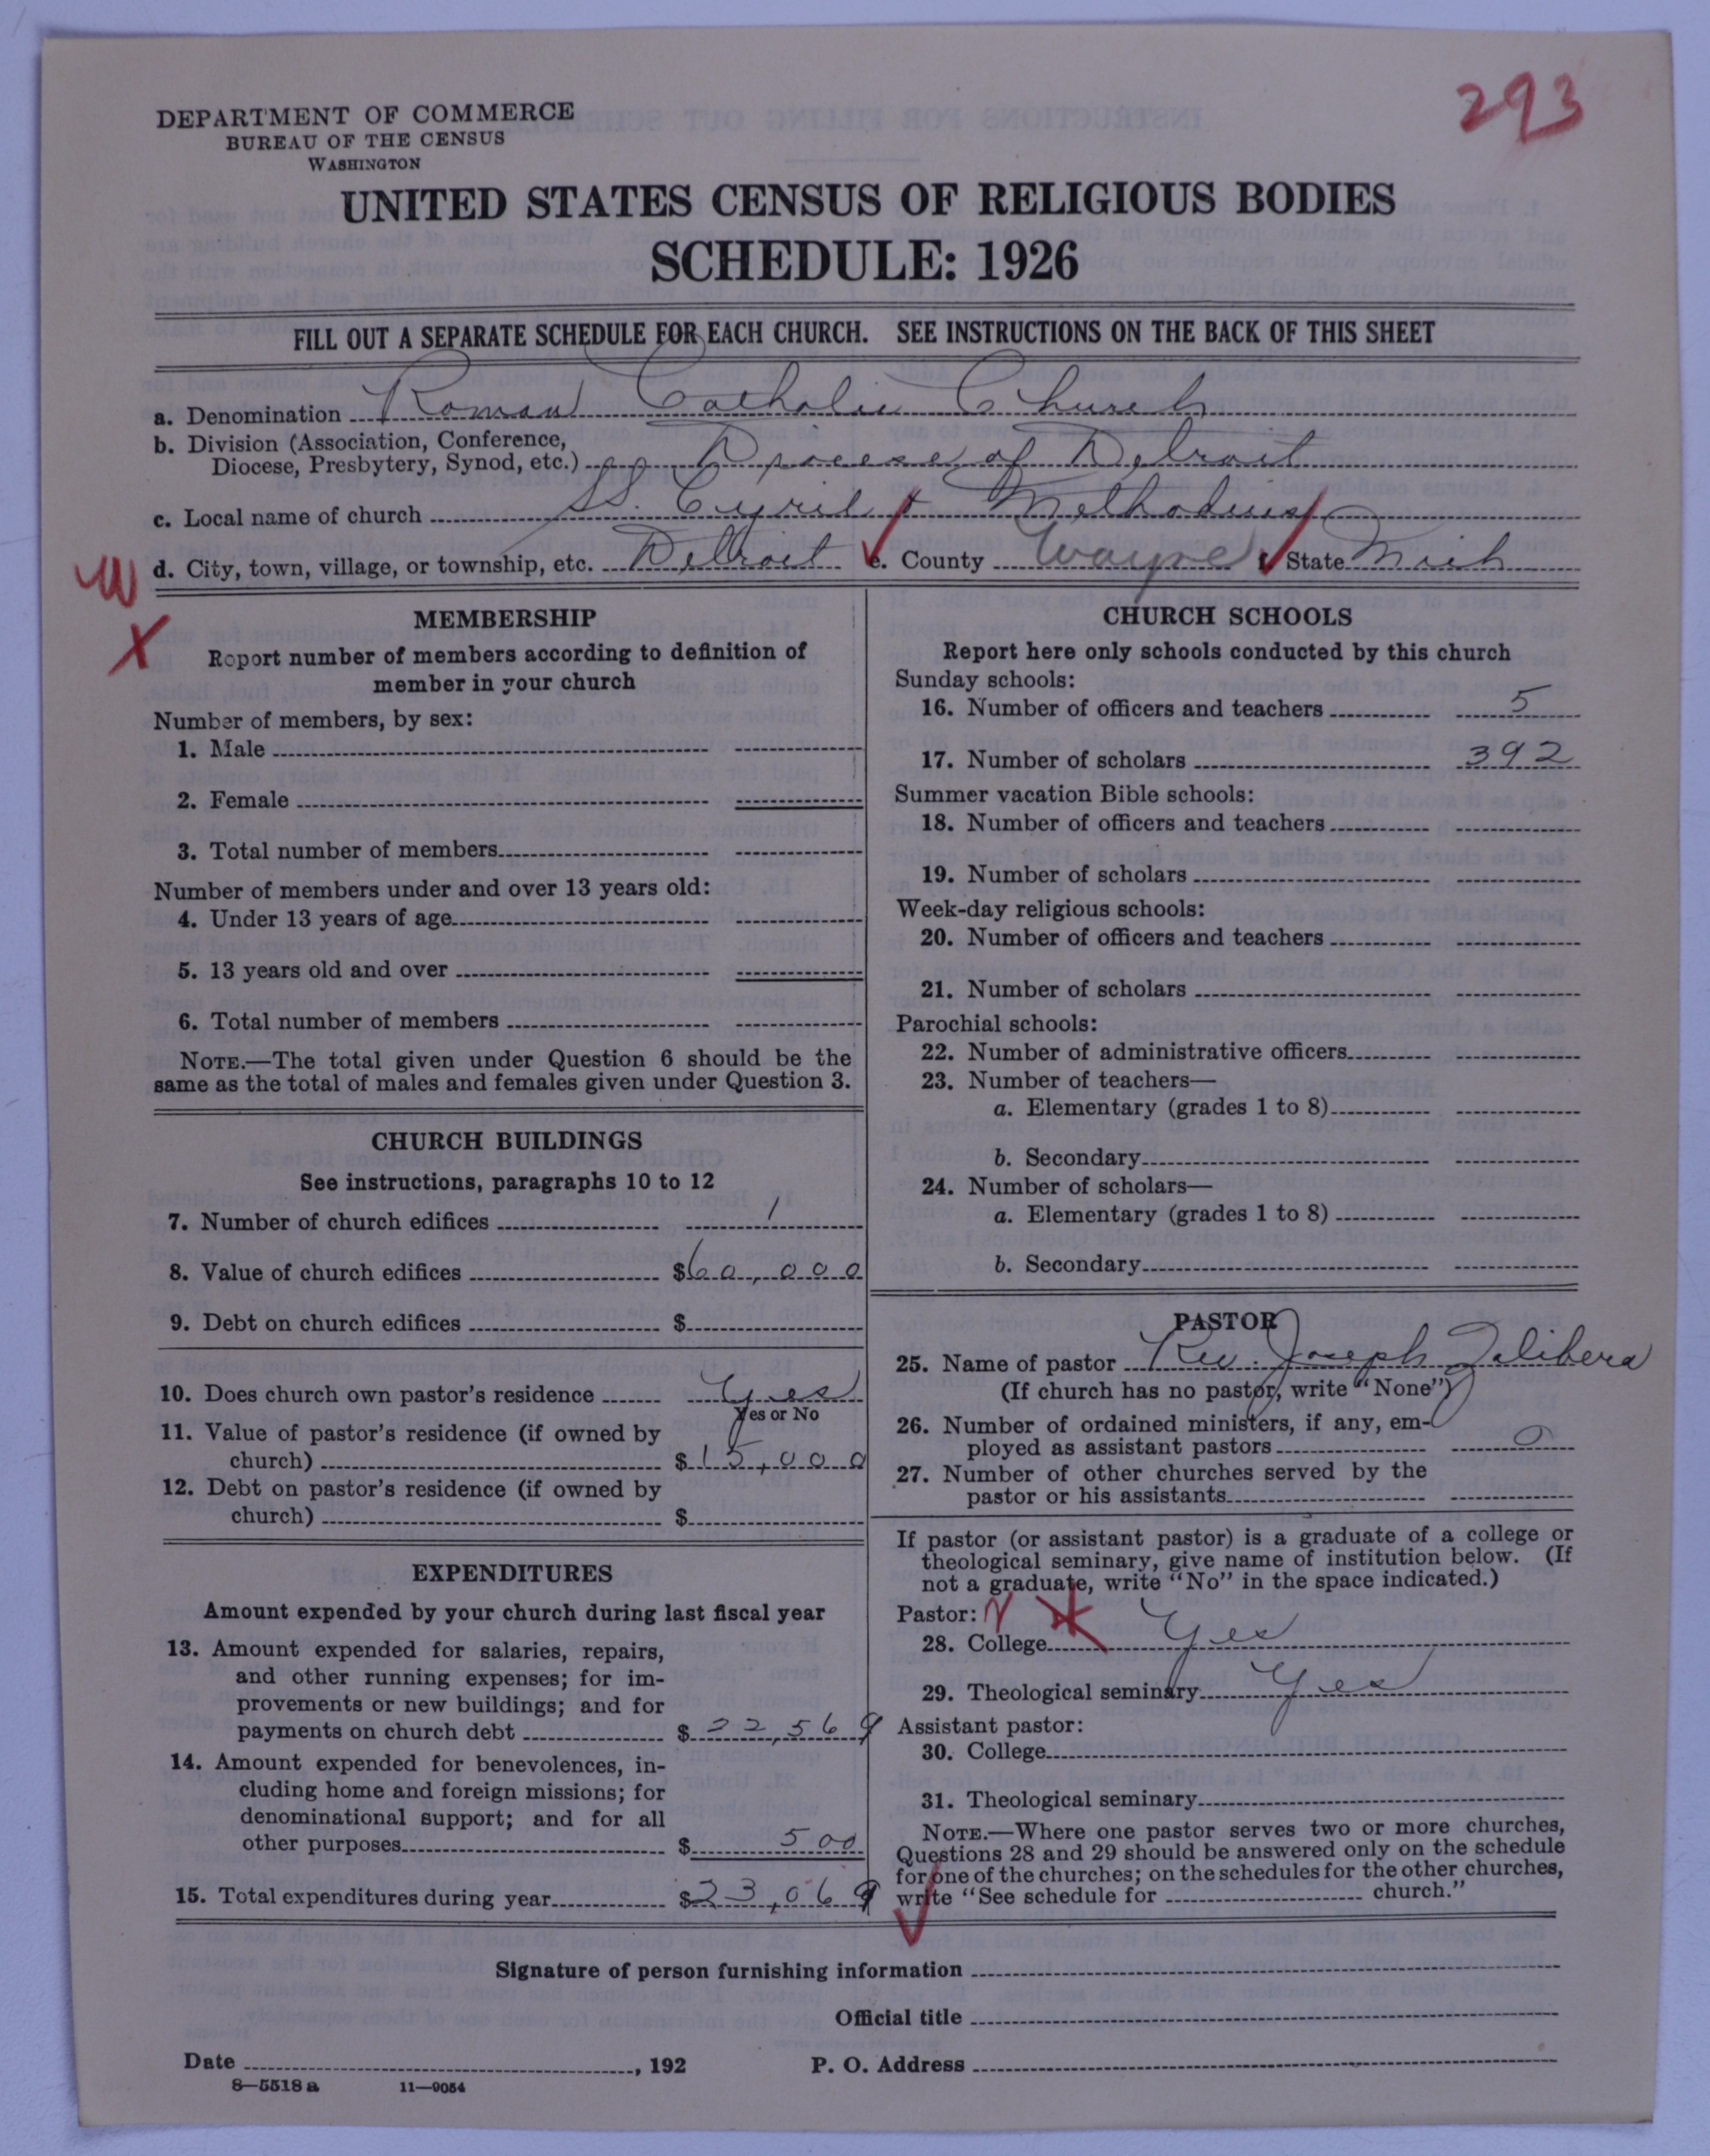 293
DEPARTMENT OF COMMERCE
BUREAU OF THE CENSUS
WASHINGTON
UNITED STATES CENSUS OF RELIGIOUS BODIES
SCHEDULE: 1926
FILL OUT A SEPARATE SCHEDULE FOR EACH CHURCH. SEE INSTRUCTIONS ON THE BACK OF THIS SHEET
a. Denomination Roman Catholic Church
b. Division (Association, Conference,
Diocese, Presbytery, Synod, etc.) Diocese of Detroit
c. Local name of church SS. Cyril & Methodius
d. City, town, village, or township, etc. Detroit e. County Wayne f. State Mich
MEMBERSHIP
Report number of members according to definition of
member in your church
Number of members, by sex:
1. Male
2. Female
3. Total number of members
Number of members under and over 13 years old:
4. Under 13 years of age
5. 13 years old and over
6. Total number of members
NOTE.—The total given under Question 6 should be the
same as the total of males and females given under Question 3.
CHURCH BUILDINGS
See instructions, paragraphs 10 to 12
7. Number of church edifices 1
8. Value of church edifices $60,000
9. Debt on church edifices $
10. Does church own pastor's residence yes
Yes or No
11. Value of pastor's residence (if owned by
church) $15,000
12. Debt on pastor's residence (if owned by
church) $
EXPENDITURES
Amount expended by your church during last fiscal year
13. Amount expended for salaries, repairs,
and other running expenses; for im-
provements or new buildings; and for
payments on church debt $22,569
14. Amount expended for benevolences, in-
cluding home and foreign missions; for
denominational support; and for all
other purposes $500
15. Total expenditures during year $23,069
CHURCH SCHOOLS
Report here only schools conducted by this church
Sunday schools:
16. Number of officers and teachers 5
17. Number of scholars 392
Summer vacation Bible schools:
18. Number of officers and teachers
19. Number of scholars
Week-day religious schools:
20. Number of officers and teachers
21. Number of scholars
Parochial schools:
22. Number of administrative officers
23. Number of teachers—
a. Elementary (grades 1 to 8)
b. Secondary
24. Number of scholars—
a. Elementary (grades 1 to 8)
b. Secondary
PASTOR
25. Name of pastor Rev. Joseph Zalibera
(If church has no pastor, write "None")
26. Number of ordained ministers, if any, em-
ployed as assistant pastors 0
27. Number of other churches served by the
pastor or his assistants
If pastor (or assistant pastor) is a graduate of a college or
theological seminary, give name of institution below. (If
not a graduate, write "No" in the space indicated.)
Pastor:
28. College Yes
29. Theological seminary Yes
Assistant pastor:
30. College
31. Theological seminary
NOTE.—Where one pastor serves two or more churches,
Questions 28 and 29 should be answered only on the schedule
for one of the churches; on the schedules for the other churches,
write "See schedule for church."
Signature of person furnishing information
Official title
Date , 192 P. O. Address
8—5518 a 11—9054